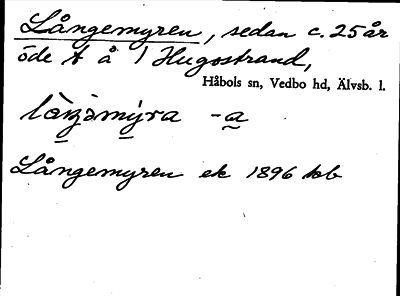 Långemyren, sedan c. 25 år
öde t å 1 Hugostrand,
Håbols sn, Vedbo hd, Älvsb. l.
-a
Långemyren ek 1896 kb